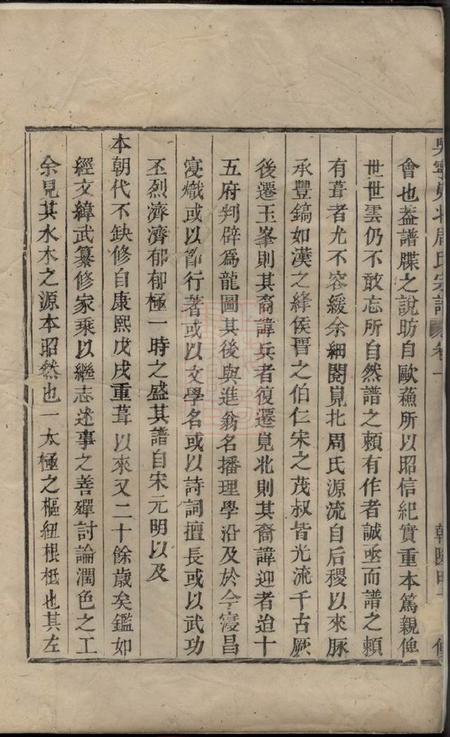 會也蓋譜牒之說昉自歐蘇所以昭信紀實重本篤親俾
世世雲仍不敢忘所自然譜之賴有作者誠亟而譜之賴
有葺者尤不容緩余細閱見北周氏源流自后稷以來脉
承豐鎬如漢之絳侯晋之伯仁宋之茂叔皆光流千古厥
後遷玉峯則其裔諱兵者復遷見北則其裔諱迎者迨十
五府判辟為龍圖其後與進翁名播理學沿及於今寖昌
寖熾或以節行著或以文學名或以詩詞擅長或以武功
丕烈濟濟郁郁極一時之盛其譜自宋元明以及
本朝代不缺修自康熙戊戌重葺以來又二十餘歲矣鑑如
經文緯武纂修家乘以繼志述事之善殫討論潤色之工
余見其水木之源本昭然也一太極之樞紐根柢也其左